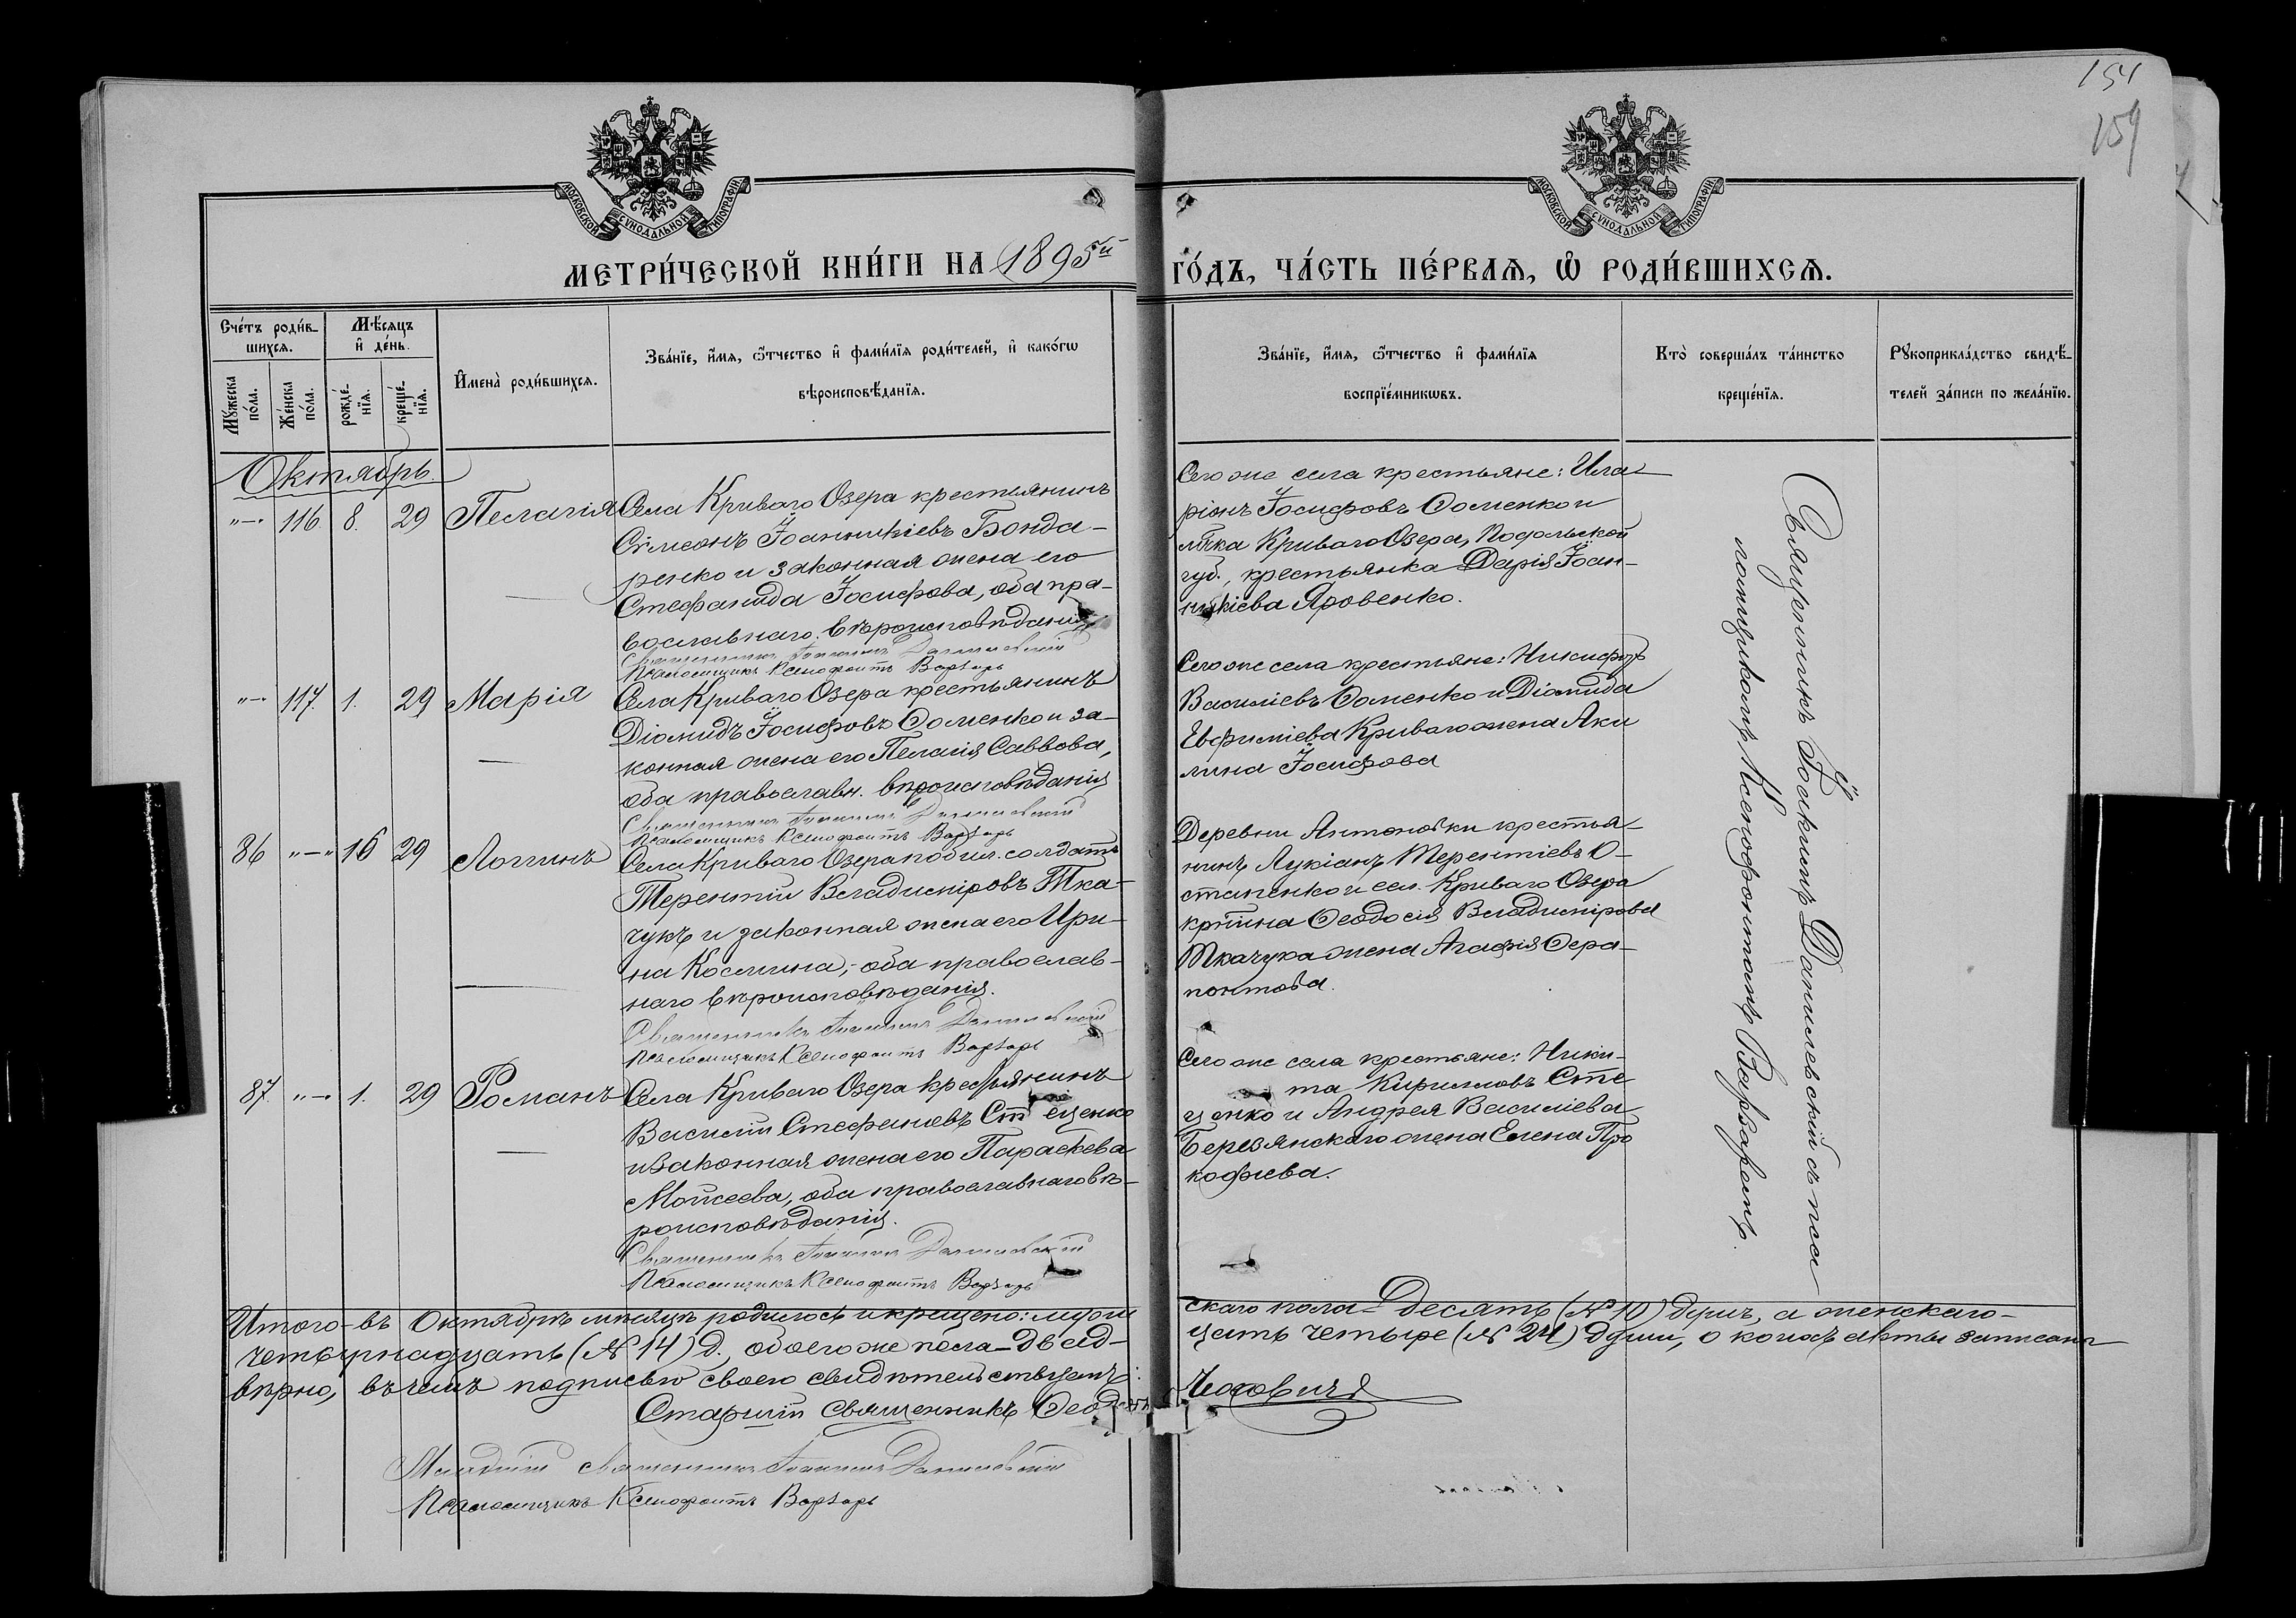 154
159
МОСКОВСКОЙ СѴНОДАЛЬНОЙ ТИПОГРАФІИ
МОСКОВСКОЙ СѴНОДАЛЬНОЙ ТИПОГРАФІИ
МЕТРИ́ЧЕСКОЙ КНИ́ГИ НА 1895й
ГО́ДЪ, ЧА́СТЬ ПЕ́РВАѦ, Ѡ РОДИ́ВШИХСѦ.
Сче́тъ роди́в-
шихсѧ.
Мѣ́сѧцъ
и де́нь.
Мꙋ́жеска
по́ла.
Же́нска
по́ла.
рожде́-
нїѧ.
креще́-
нїѧ.
Имена̀ роди́вшихсѧ.
Зва́нїе, и́мѧ, ѻ́тчество и фами́лїѧ роди́телей, и како́гѡ
вѣроисповѣ́данїѧ.
Зва́нїе, и́мѧ, ѻ́тчество и фами́лїѧ
воспрїе́мникѡвъ.
Кто̀ соверша́лъ та́инство
креще́нїѧ.
Рꙋкоприкла́дство свидѣ́-
телей за́писи по жела́нїю.
Октябрь.
"—" 116. 8. 29 Пелагія
Села Криваго Озера крестьянинъ
Сѵмеонъ Іоанникіевъ Бонда-
ренко и законная жена его
Стефанида Іосифова, оба пра-
вославнаго вѣроисповѣданія
Священникъ Іоакимъ Данилевскій
Псаломщикъ Ксенофонтъ Варзарь
Сего же села крестьяне: Ила-
ріонъ Іосифовъ Фоменко и
мѣстечка Криваго Озера, Подольской
губ., крестьянка Дарія Іоан-
никіева Яровенко.
"—" 117. 1. 29 Марія
Села Криваго Озера крестьянинъ
Діомидъ Іосифовъ Фоменко и за-
конная жена его Пелагія Саввова,
оба православн. вѣроисповѣданія
Священникъ Іоакимъ Данилевскій
Псаломщикъ Ксенофонтъ Варзарь
Сего же села крестьяне: Никифоръ
Василіевъ Фоменко и Діомида
Евфиміева Криваго жена Аки
лина Іосифова
86 "—" 16 29 Логгинъ
Села Криваго Озера подил. солдатъ
Терентій Владиміровъ Тка-
чукъ и законная жена его Ири-
на Космина, оба православ-
наго вѣроисповѣданія.
Священникъ Іоакимъ Данилевскій
Псаломщикъ Ксенофонтъ Варзарь
Деревни Антоновки крестья-
нинъ Лукіанъ Терентіевъ О-
стапенко и сел. Криваго Озера
крт͠ина Ѳеодосія Владимірова
Ткачука жена Агафія Ѳера-
понтова.
87. "—" 1. 29 Романъ
Села Криваго Озера крестьянинъ
Василій Стефановъ Стеценко
и законная жена его Параскева
Моѵсеева, оба православнаго вѣ-
роисповѣданія.
Священникъ Іоакимъ Данилевскій
Псаломщикъ Ксенофонтъ Варзарь
Сего же села крестьяне: Ники-
та Кирилловъ Сте
ценко и Андрея Василіева
Березянскаго жена Елена Про
кофіева.
Священникъ Іоакимъ Данилевскій съ пса
ломщикомъ Ксенофонтомъ Варзаремъ.
Итого въ Октябрѣ мѣсяцѣ родилось и крещено: мужескаго пола Десять (№ 10) душъ, а женскаго
четырнадцать (№ 14) д., обоего же пола Двадцать четыре (№ 24) души, о коихъ акты записаны
вѣрно, въ чемъ подписью своею свидѣтельствуемъ:
Старшій Священникъ Ѳеод
Младшій Священникъ Іоакимъ Данилевскій
Псаломщикъ Ксенофонтъ Варзарь